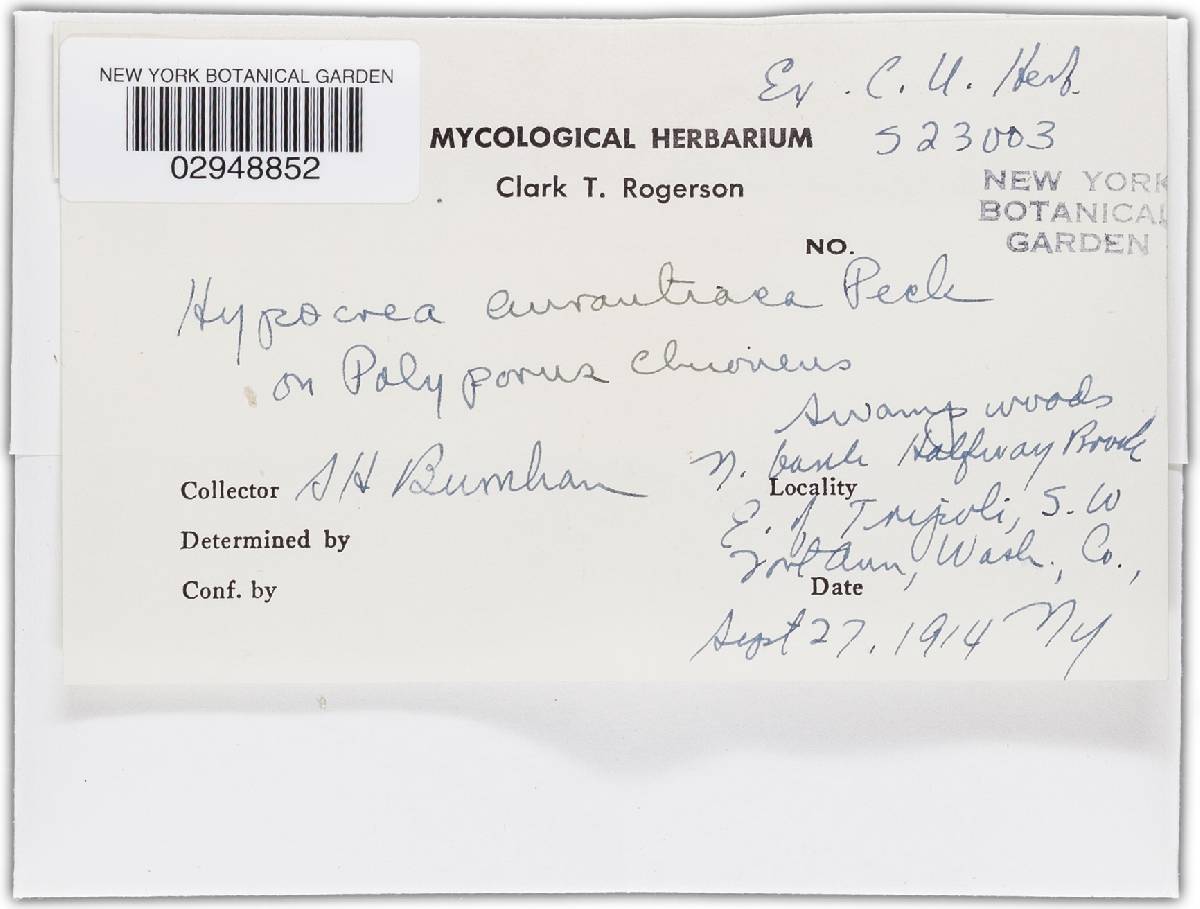 NEW YORK BOTANICAL GARDEN
02948852
Ex. C. U. Herb.
MYCOLOGICAL HERBARIUM
523003
Clark T. Rogerson
NEW YORK
BOTANICAL
GARDEN
NO.
Hypocrea aurantiaca Peck
on Polyporus chioneus
Swamp woods
N. bank Halfway Brook
Collector SH Burnham
Locality
E. of Tripoli, S.W
Determined by
Fort Ann, Wash., Co.,
Conf. by
Date
Sept 27, 1914 NY